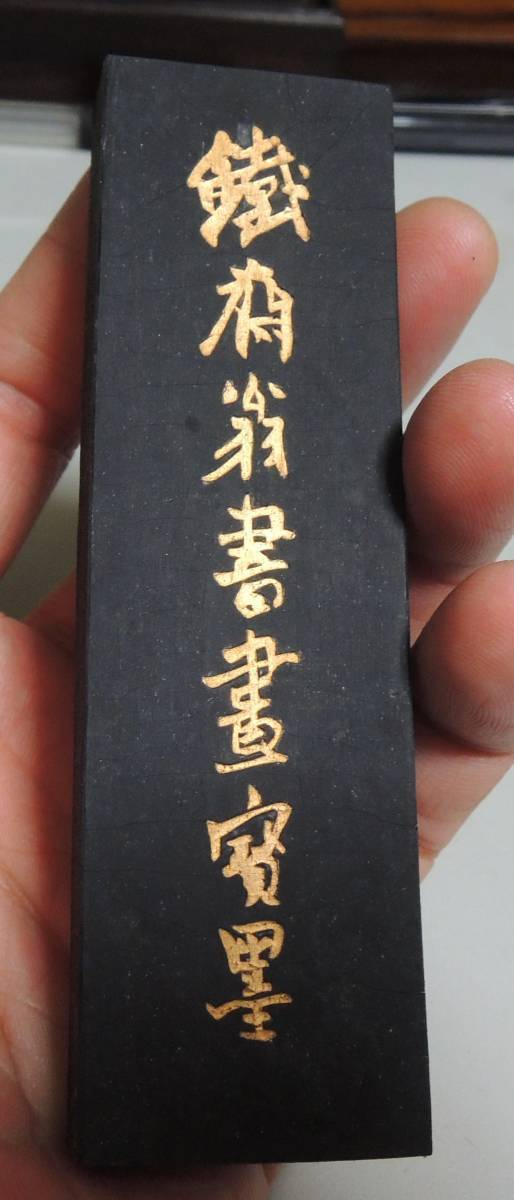 鐵齋翁書畫寶墨